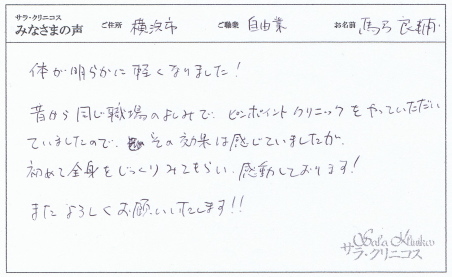 サラ・クリニコス
みなさまの声
ご住所 横浜市 ご職業 自由業 お名前 馬弓 良輔
体が明らかに軽くなりました!
昔から同じ職場のよしみで、ピンポイントクリニックをやっていただい
ていましたので、その効果は感じていましたが、
初めて全身をじっくりみてもらい、感動しております!
またよろしくお願いいたします!!
Sala Klinikos
サラ・クリニコス